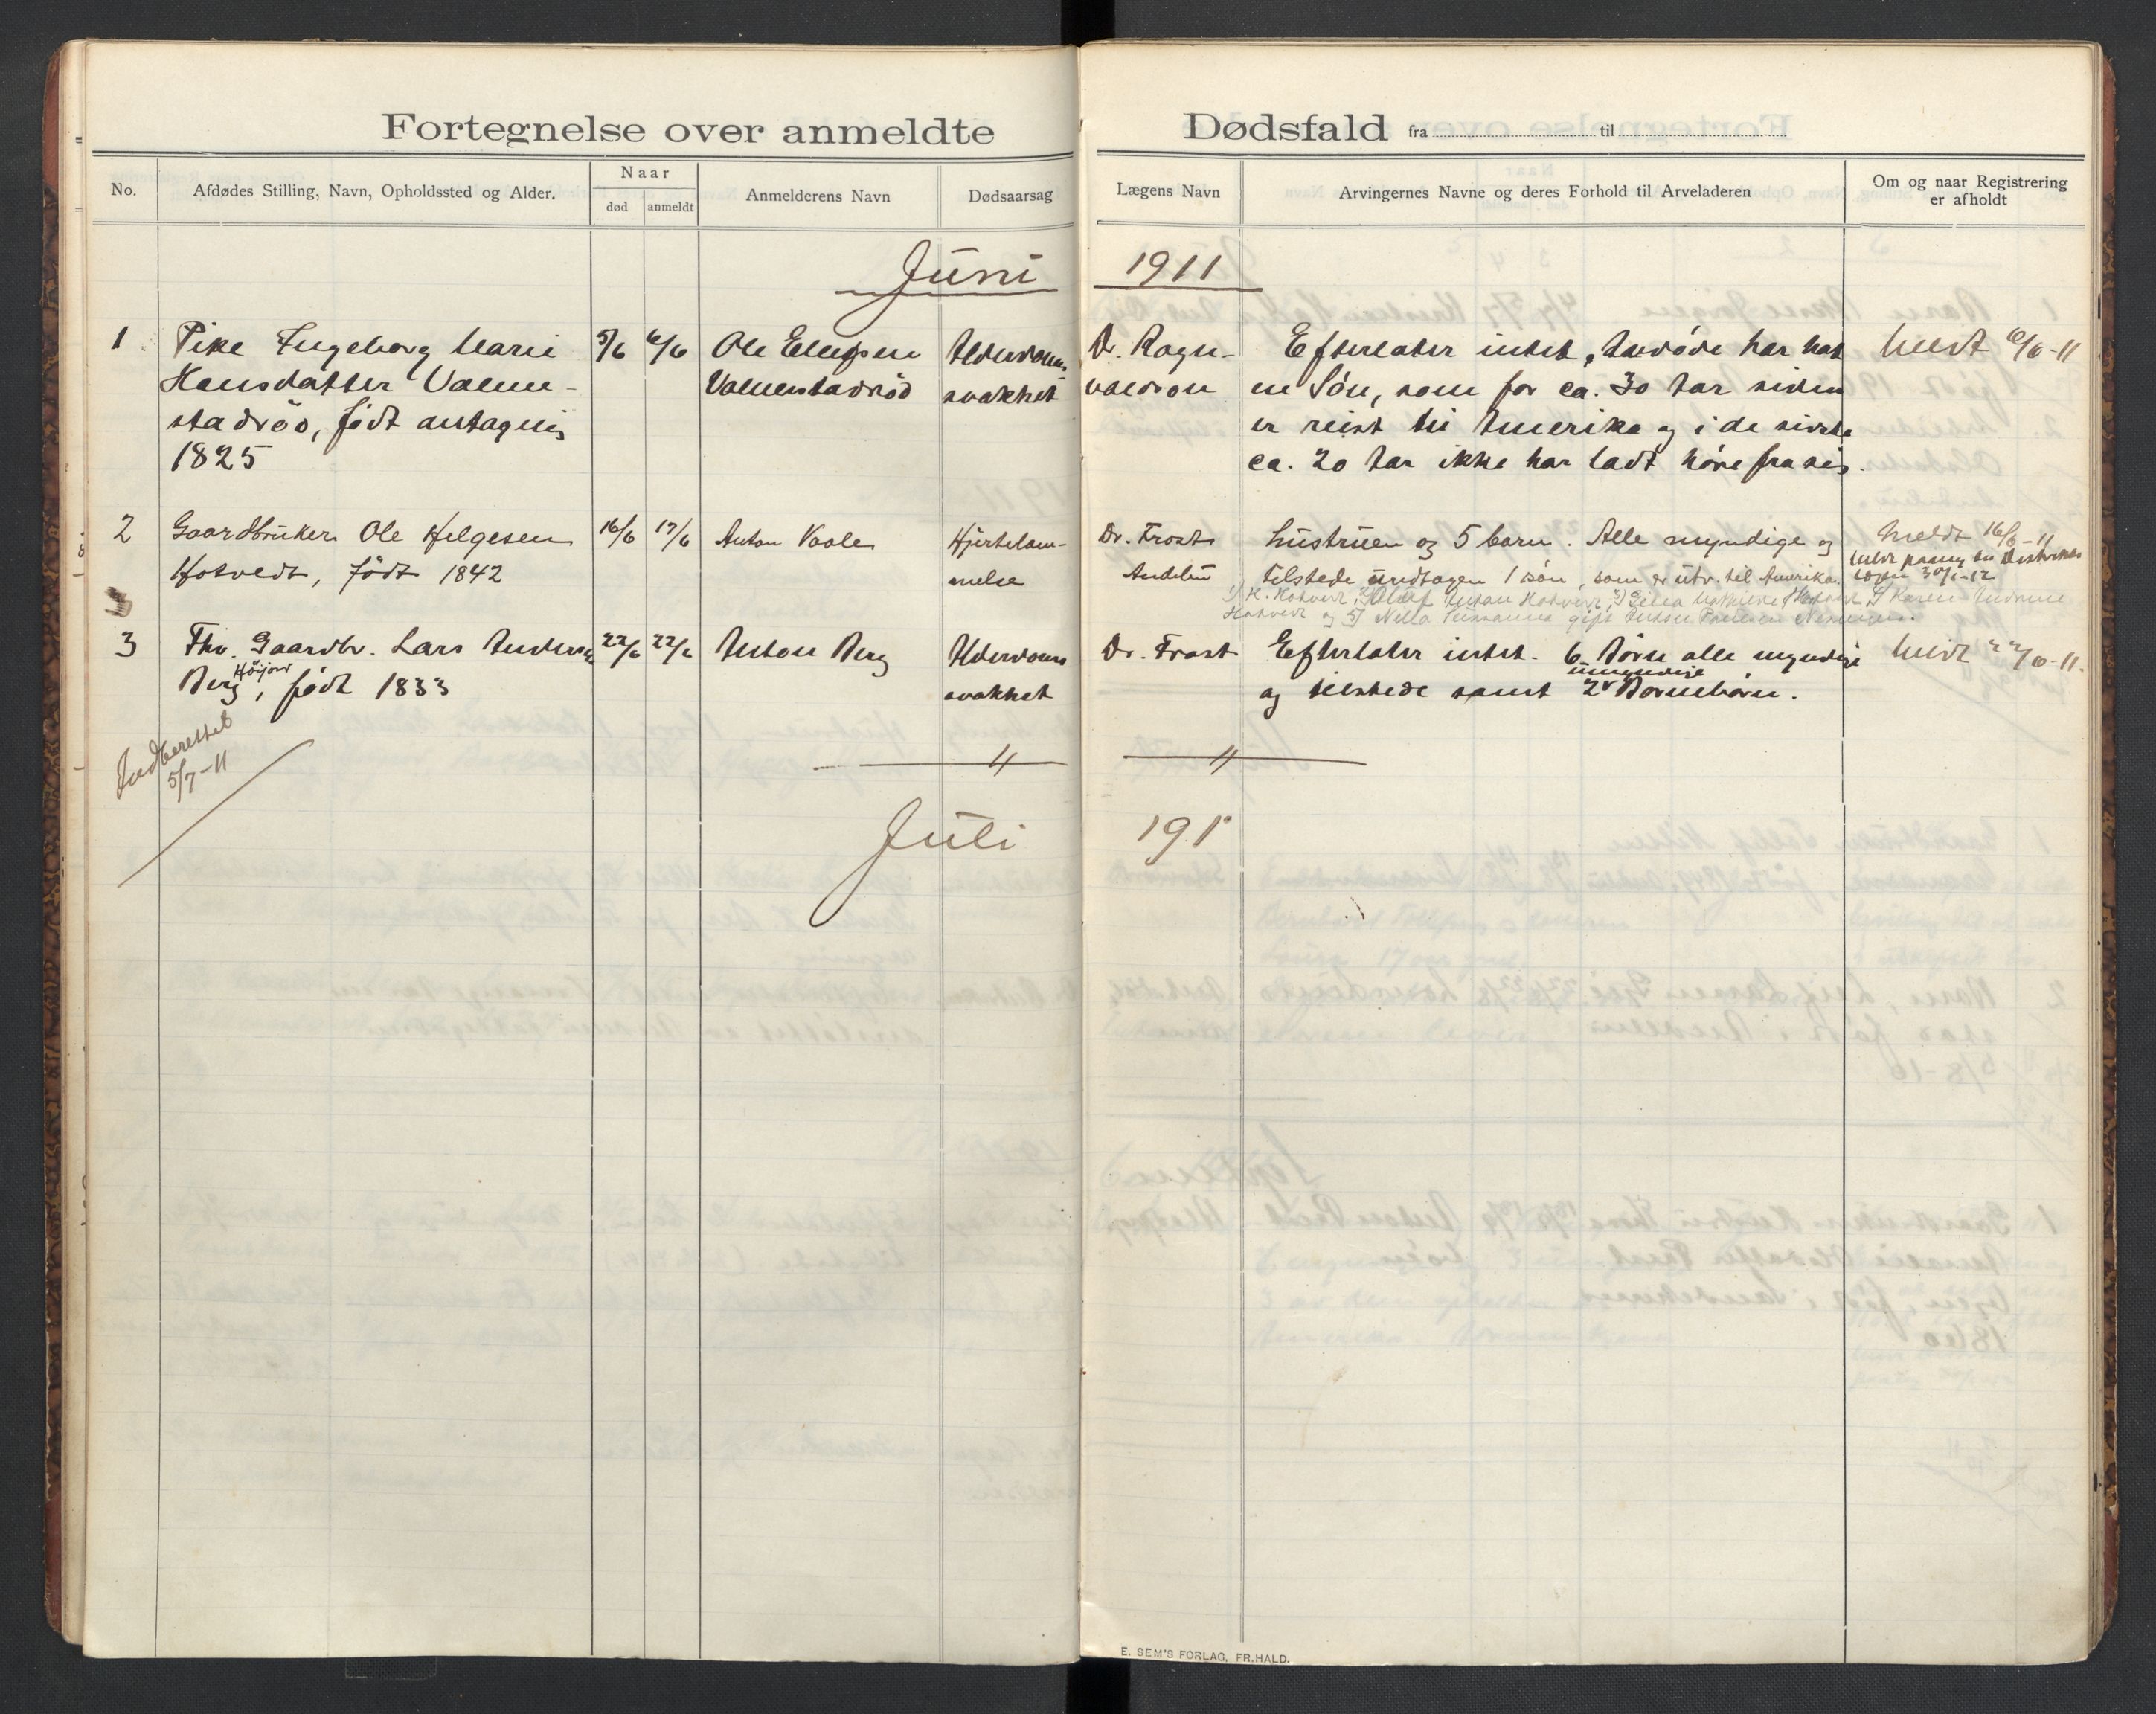 Fortegnelse over anmeldte Dødsfald fra til
No.
Afdødes Stilling, Navn, Opholdssted og Alder.
Naar
død
anmeldt
Anmelderens Navn
Dødsaarsag
Lægens Navn
Arvingernes Navne og deres Forhold til Arveladeren
Om og naar Registrering
er afholdt
Juni 1911
1 Pike Ingeborg Marie 5/6 6/6 Ole Ellefsen Alderdoms- Dr. Ragn- Efterlater intet, Avdøde har hat Meldt 6/6-11
Hansdatter Valme- Valmestadrød svakhet valdson en Søn, som for ca. 30 Aar siden
stadrød, født antagelig er reist til Amerika og i de sidste
1825 ca. 20 Aar ikke har ladt høre fra sig.
2 Gaardbruker Ole Helgesen 16/6 17/6 Anton Vaale Hjertelam- Dr. Frost Hustruen og 5 barn. Alle myndige og Meldt 16/6-11
Hotvedt, født 1842 melse Andebu tilstede undtagen 1 søn, som er utv. til Amerika.
30/1-12
1) H. Hotvedt, 2) Oluf Anton Hotvedt, 3) Mathilde Hotvedt, 4) Karen Andrine
Hotvedt og 5) gift Anton
3 Fhv. Gaardbr. Lars Andersen 22/6 22/6 Anton Berg Alderdoms Dr. Frost Efterlater intet. 6 Børn alle myndige Meldt 22/6-11.
Berg Höijord, født 1833 svakhet og tilstede samt 2 umyndige Børnebørn.
Indberettet
5/7-11
Juli 191
E. SEM'S FORLAG, FR.HALD.